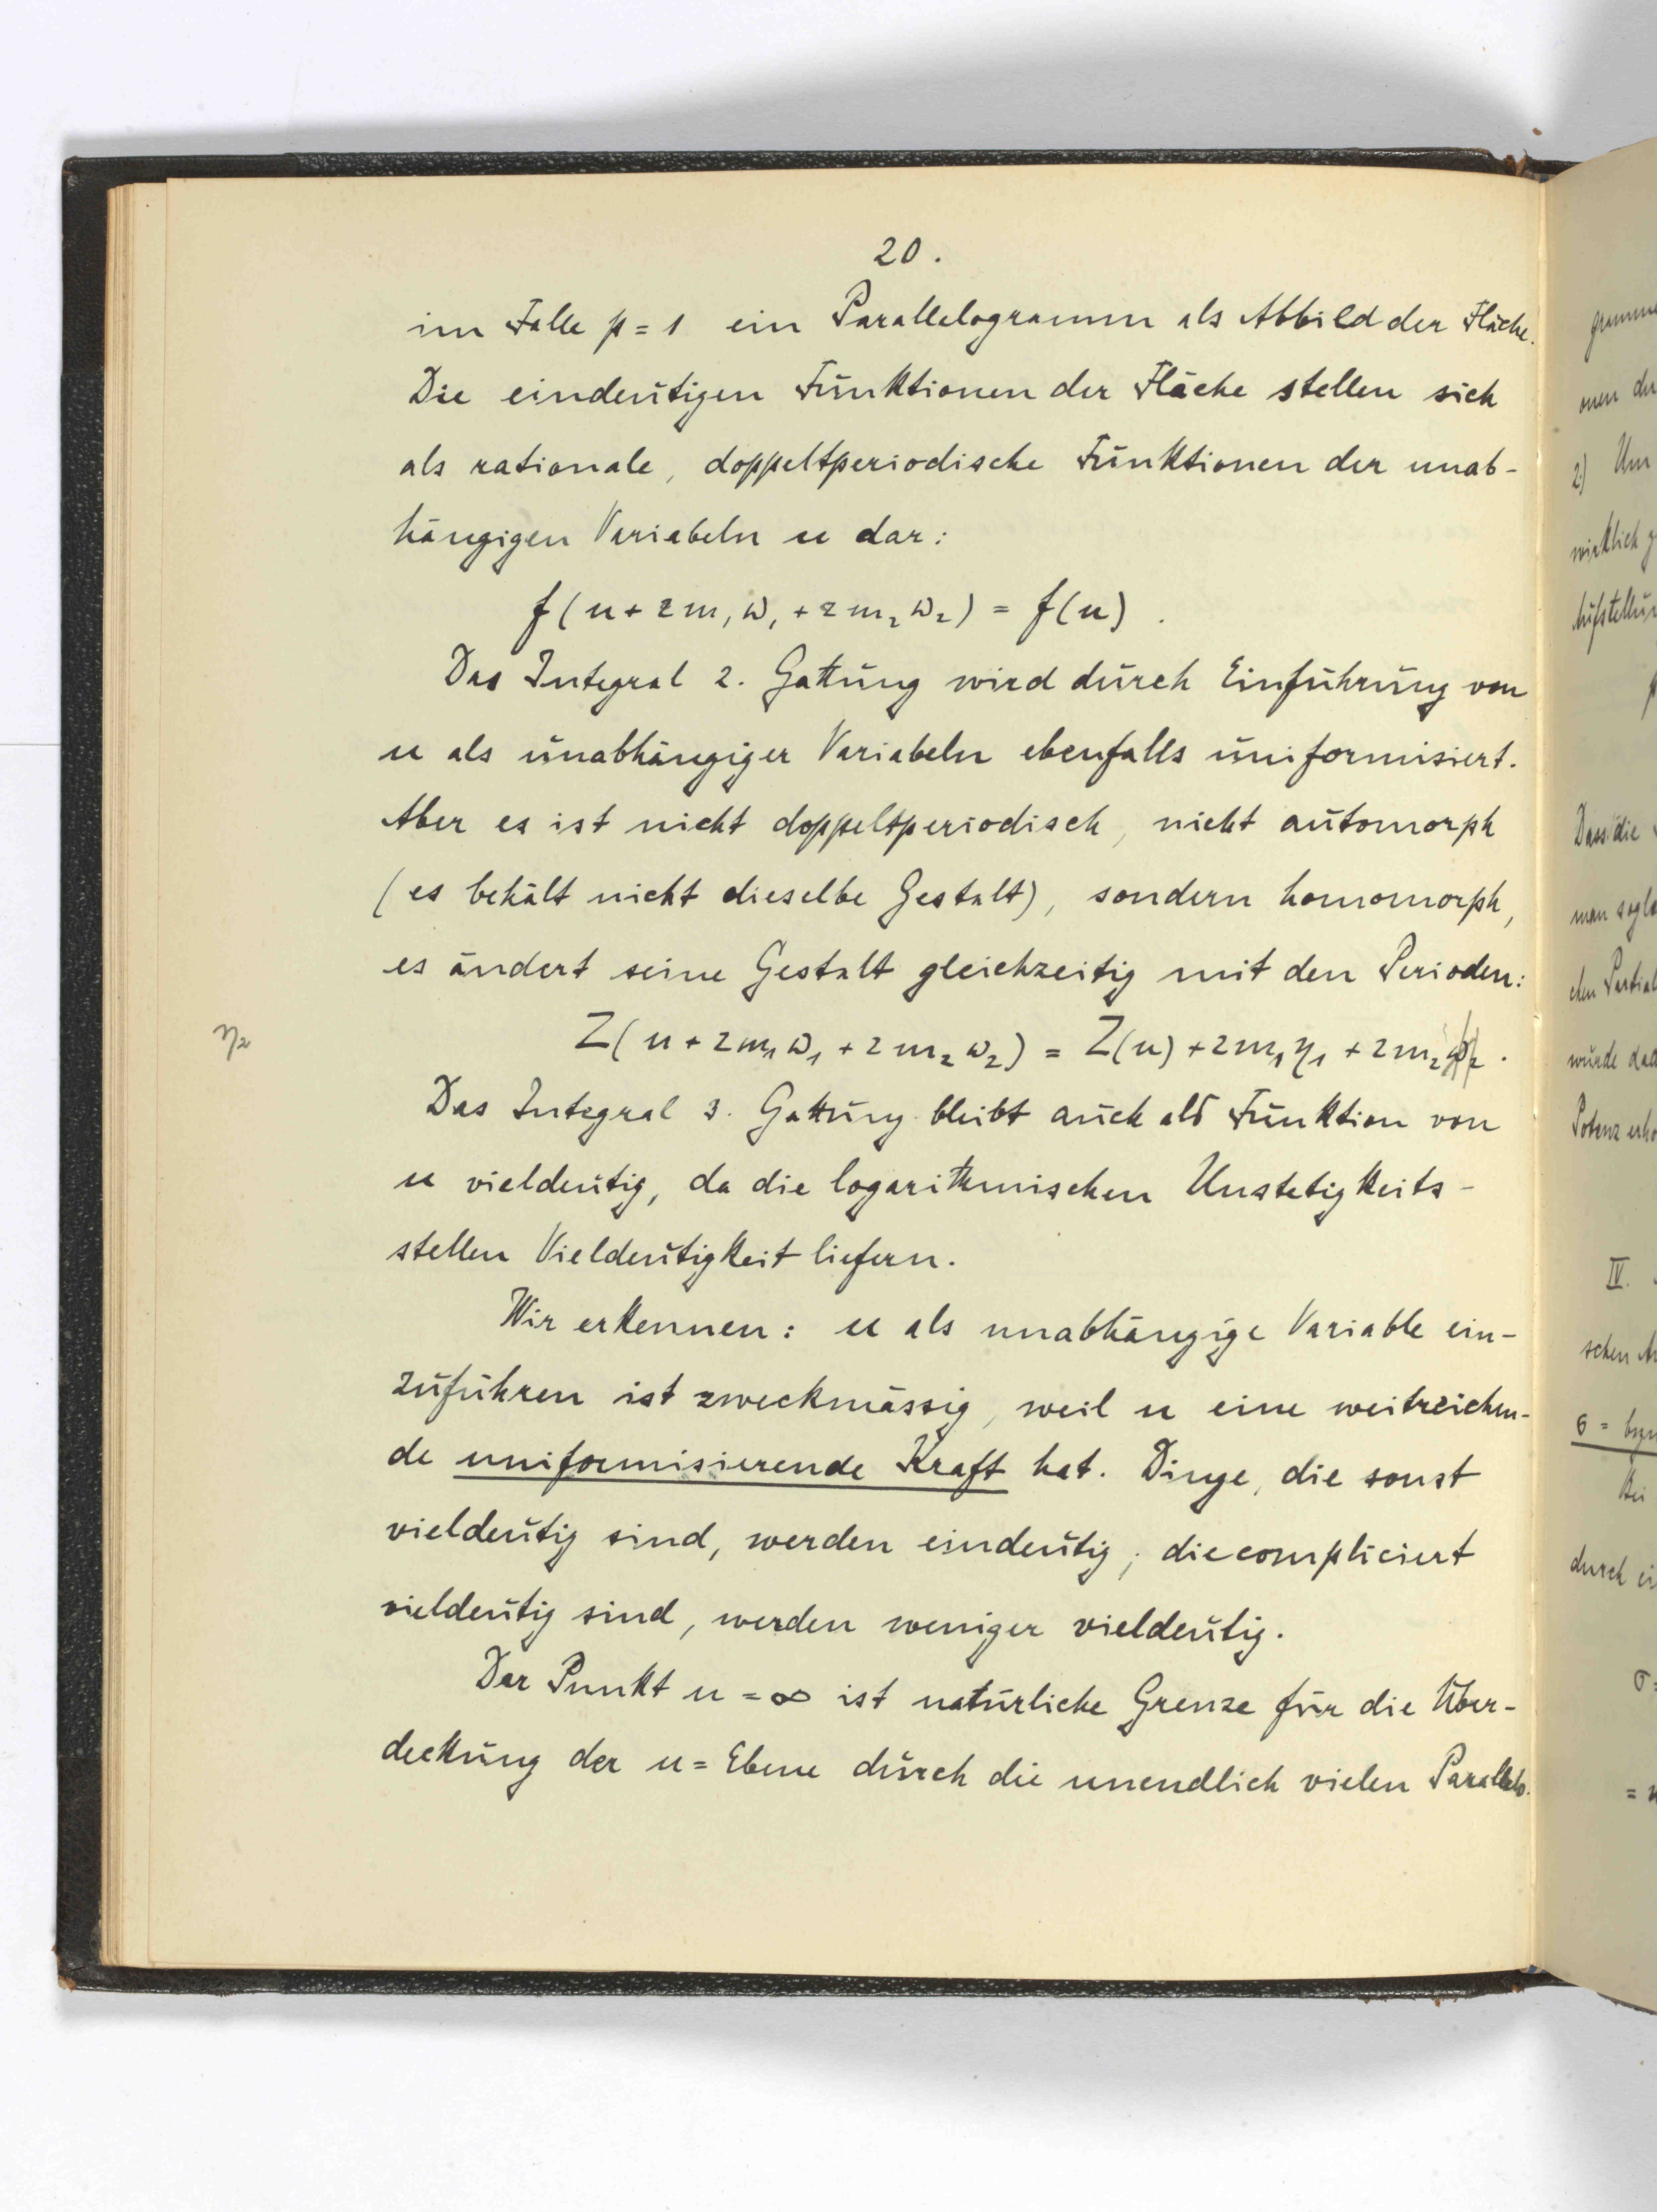 20.
im Falle p = 1 ein Parallelogramm als Abbild der Fläche.
Die eindeutigen Funktionen der Fläche stellen sich
als rationale, doppeltperiodische Funktionen der unab-
hängigen Variabeln u dar:
f(u + 2m₁ω₁ + 2m₂ω₂) = f(u).
Das Integral 2. Gattung wird durch Einführung von
u als unabhängiger Variabeln ebenfalls uniformisiert.
Aber es ist nicht doppeltperiodisch, nicht automorph
(es behält nicht dieselbe Gestalt), sondern homomorph,
es ändert seine Gestalt gleichzeitig mit den Perioden:
η₂
Z(u + 2m₁ω₁ + 2m₂ω₂) = Z(u) + 2m₁η₁ + 2m₂ω₂.
Das Integral 3. Gattung bleibt auch als Funktion von
u vieldeutig, da die logarithmischen Unstetigkeits-
stellen Vieldeutigkeit liefern.
Wir erkennen: u als unabhängige Variable ein-
zuführen ist zweckmässig, weil u eine weitreichen-
de uniformisierende Kraft hat. Dinge, die sonst
vieldeutig sind, werden eindeutig; die compliciert
vieldeutig sind, werden weniger vieldeutig.
Der Punkt u = ∞ ist natürliche Grenze für die Über-
deckung der u = Ebene durch die unendlich vielen Parallelo-
onen der
2) Um
wirklich
Dass die
würde
IV.
σ =
durch